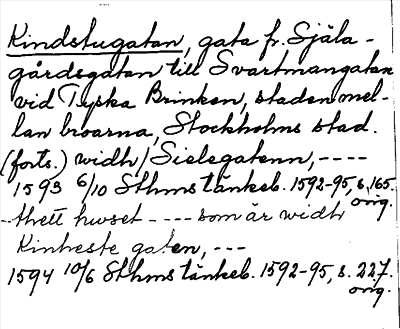 Kindstugatan, gata fr. Själa-
gårdsgatan till Svartmangatan
vid Tyska Brinken, staden mel-
lan broarna, Stockholms stad.
(forts.) widh / Sielegatenn, ----
1593 6/10 Sthms tänkeb. 1592-95, s. 165.
orig.
--thett hwset ---- som är widh
Kinheste gaten, ---
1594 10/6 Sthms tänkeb. 1592-95, s. 227.
orig.